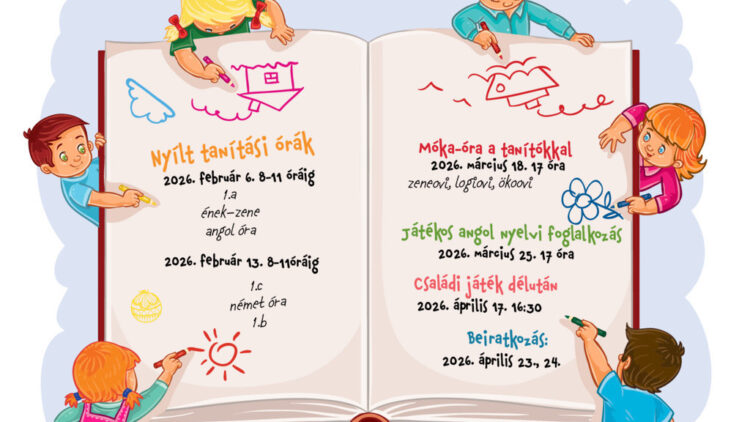 Nyílt tanítási órák
2026. február 6. 8-11 óráig
1.a
ének-zene
angol óra
2026. február 13. 8-11óráig
1.c
német óra
1.b
Móka-óra a tanítókkal
2026. március 18. 17 óra
zeneovi, logiovi, ökoovi
Játékos angol nyelvi foglalkozás
2026. március 25. 17 óra
Családi játék délután
2026. április 17. 16:30
Beiratkozás:
2026. április 23., 24.